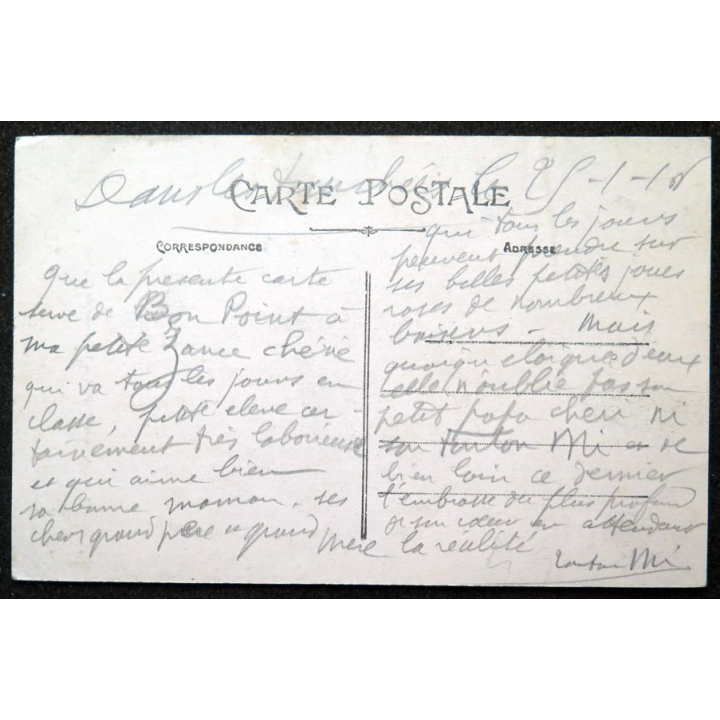 Dans les tranchées le 25-1-16
CARTE POSTALE
CORRESPONDANCE
ADRESSE
Que la presente carte
serve de Bon Point à
ma petite chérie
qui va tous les jours en
classe, petite eleve cer-
tainement très laborieuse
et qui aime bien
sa bonne maman, ses
chers grand père et grand
mère
qui tous les jours
peuvent prendre sur
ses belles petites joues
roses de nombreux
baisers - Mais
quoique eloignée d'eux
elle n'oublie pas son
petit papa cheri ni
son tonton Mi et de
bien loin ce dernier
l'embrasse du plus profond
de son cœur en attendant
la réalité
tonton Mi